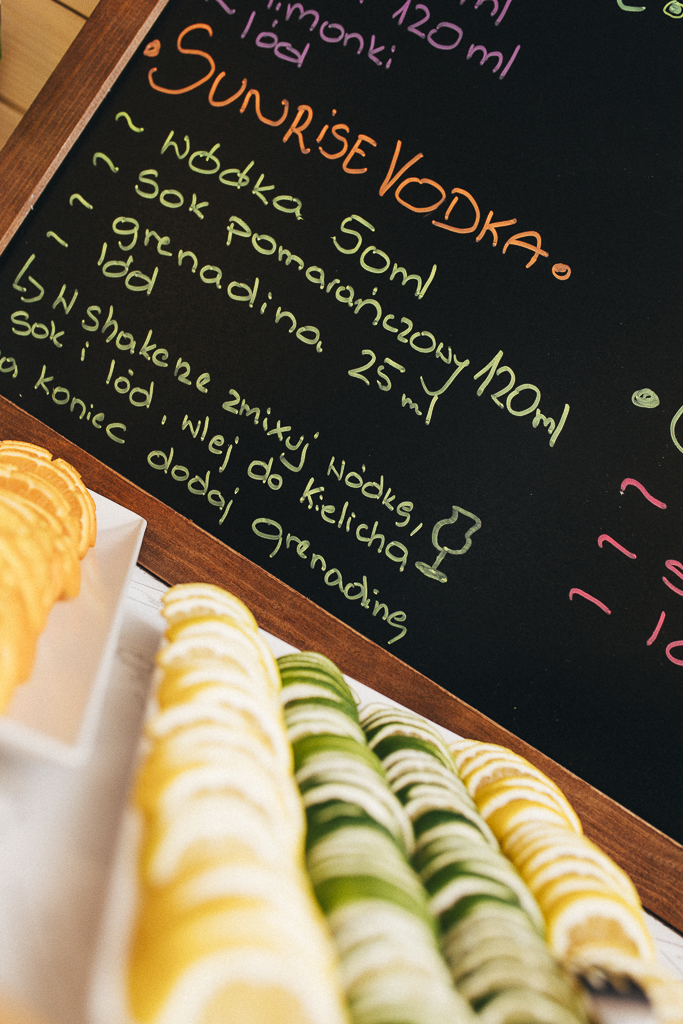 limonki 120ml
~ lód
• SUNRISE VODKA •
~ wódka 50ml
~ sok pomarańczowy 120ml
~ grenadina 25 ml
~ lód
↳ W shakerze zmixuj wódkę,
sok i lód, wlej do kielicha
na koniec dodaj grenadinę